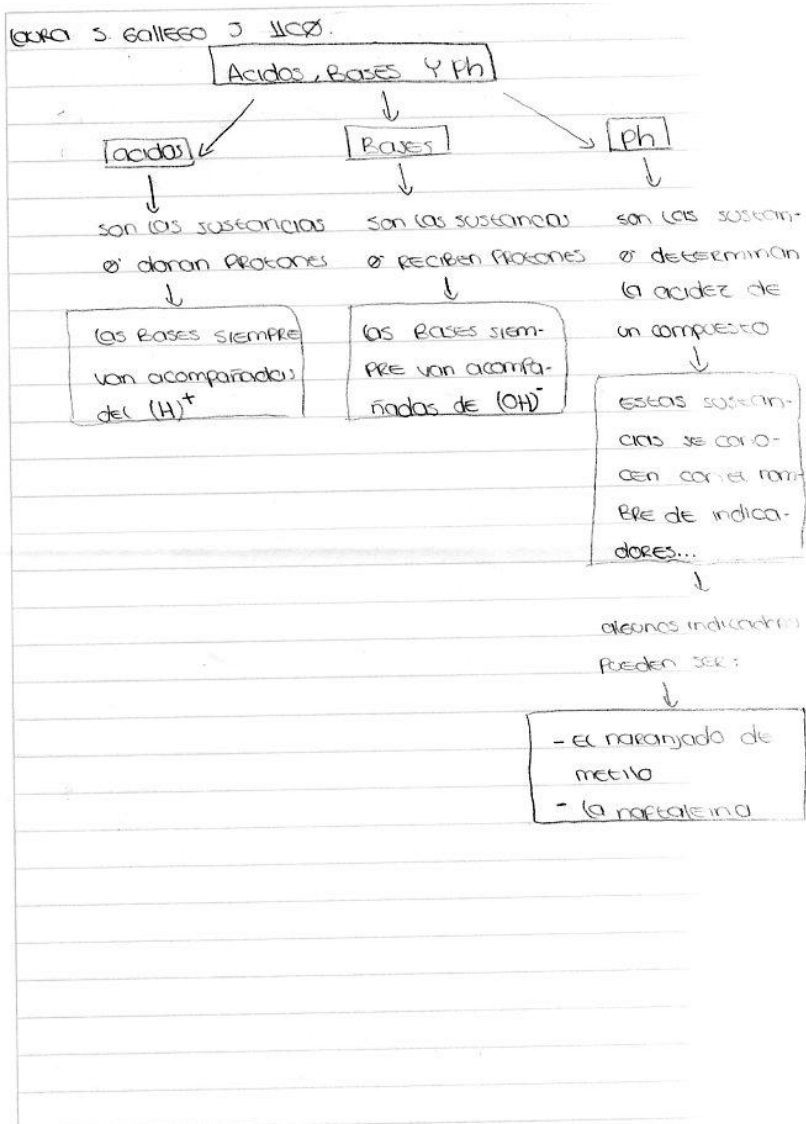 Laura S. Gallego J 11CØ.
Acidos, Bases Y Ph
acidos
Bases
Ph
son las sustancias
Ø donan Protones
las Bases siempre
van acompañadas
del (H)⁺
son las sustancias
Ø Reciben Protones
las Bases siem-
pre van acompa-
ñadas de (OH)⁻
son las sustan-
Ø determinan
la acidez de
un compuesto
Estas sustan-
cias se cono-
cen con el nom-
bre de indica-
dores...
algunos indicadores
Pueden ser:
- El naranjado de
metilo
- la naftaleina